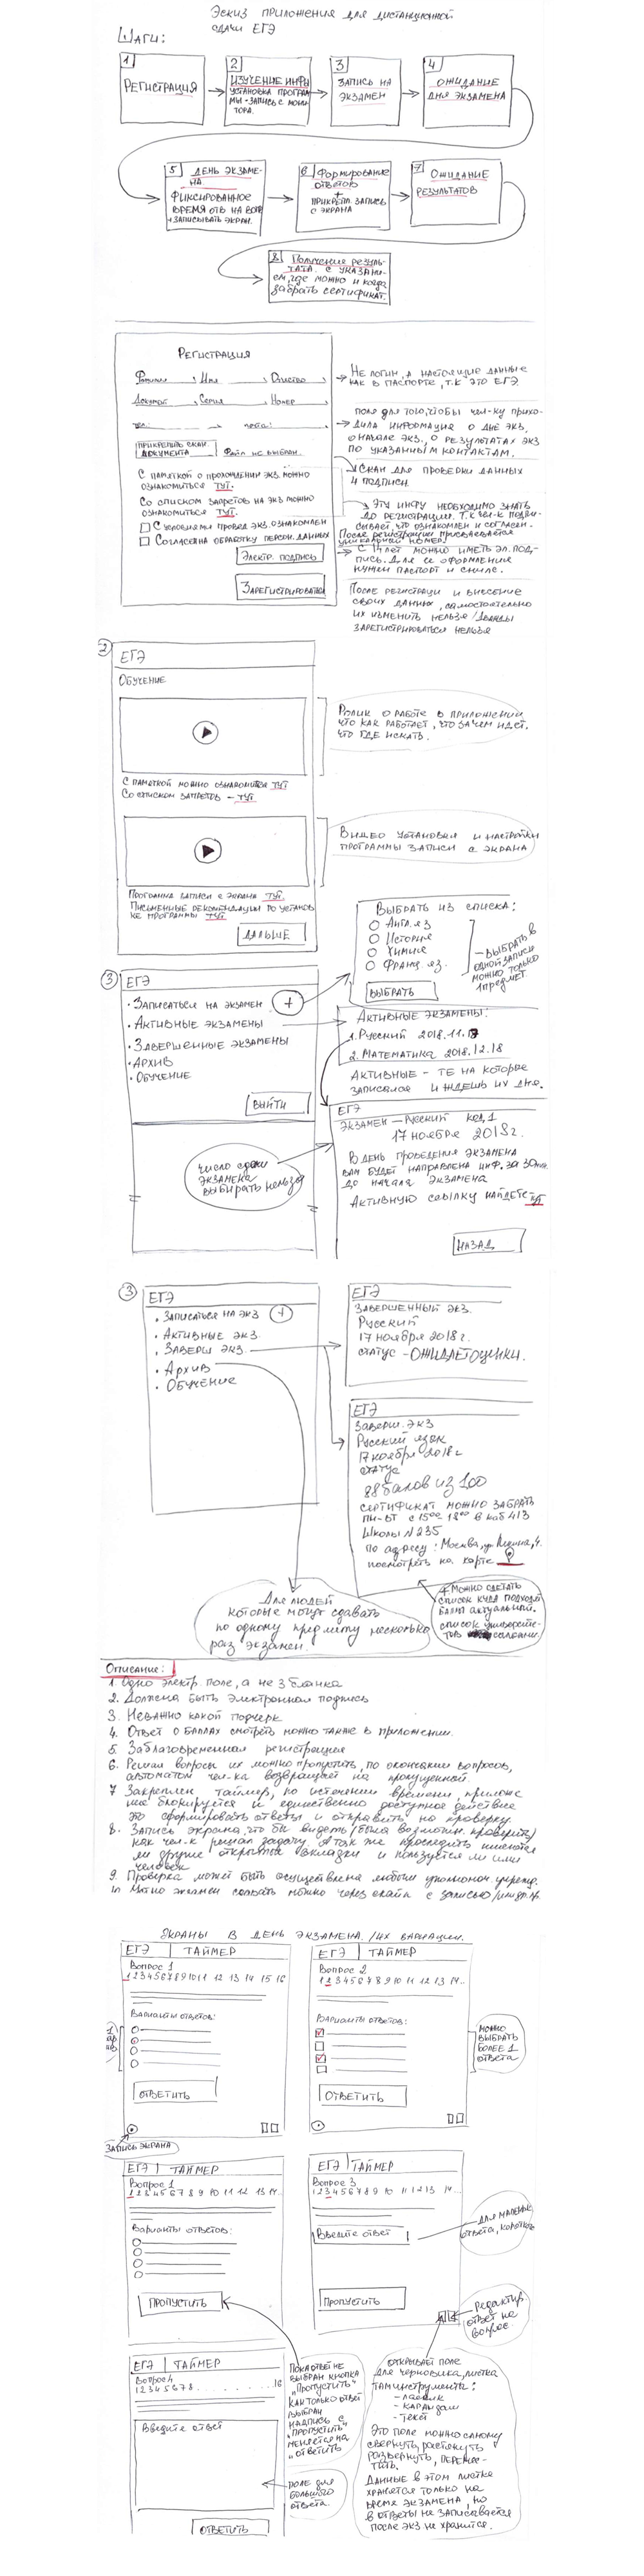 Эскиз приложения для дистанционной
сдачи ЕГЭ
Шаги:
1
Регистрация
2
Изучение инфы
установка програм-
мы - запись с мони-
тора.
3
Запись на
экзамен
4
Ожидание
дня экзамена
5
День экзаме-
на.
Фиксированное
время отв на вопр
+ записывать экран.
6
Формирование
ответов
+
прикрепл. запись
с экрана
7
Ожидание
результатов
8
Получение резуль-
тата. с указани-
ем, где можно и когда
забрать сертификат.
Регистрация
Фамилия Имя Отчество
Документ Серия Номер
тел: почта:
Прикрепить скан
документа
Файл не выбран.
С памяткой о прохождении экз. можно
ознакомиться тут.
Со списком запретов на экз можно
ознакомиться тут.
С условиями провед экз. ознакомлен
Согласен на обработку персон. данных
Электр. подпись
Зарегистрироваться
Не логин, а настоящие данные
как в паспорте, т.к это ЕГЭ
поля для того, чтобы чел-ку прихо-
дила информация о дне экз,
о начале экз., о результатах экз
по указанным контактам.
Скан для проверки данных
и подписи.
Эту инфу необходимо знать
до регистрации, т.к чел-к подпи-
сывает, что ознакомлен и согласен.
После регистрации присваивается
уникальный номер!
С 14 лет можно иметь эл. под-
пись. Для её оформления
нужен паспорт и снилс.
После регистраци и внесение
своих данных, самостоятельно
их изменить нельзя / дважды
зарегистрироваться нельзя
2
ЕГЭ
Обучение
С памяткой можно ознакомится тут
Со списком запретов - тут
Программа записи с экрана тут.
Письменные рекомендации по установ-
ке программы тут
Дальше
Ролик о работе в приложении
что как работает, что за чем идет.
что где искать.
Видео установки и настройки
программы записи с экрана
3
ЕГЭ
Записаться на экзамен +
Активные экзамены
Завершенные экзамены
Архив
Обучение
Выйти
число сдачи
экзамена
выбирать нельзя
Выбрать из списка:
Англ. яз
История
Химия
Франц. яз.
Выбрать
- Выбрать в
одной записи
можно только
1 предмет
Активные экзамены:
1. Русский 2018.11.17
2. Математика 2018.12.18
Активные - те на которые
записался и ждешь их дня.
ЕГЭ
Экзамен - Русский код.1
17 ноября 2018г.
В день проведения экзамена
вам будет направлена инф. за 30мин.
до начала экзамена
Активную ссылку найдете тут
Назад
3
ЕГЭ
Записаться на экз +
Активные экз.
Заверш экз.
Архив
Обучение
ЕГЭ
Завершенный экз.
Русский
17 ноября 2018г.
статус - ожидает оценки.
ЕГЭ
Заверш. экз
Русский язык
17 ноября 2018г
статус
88 балов из 100
сертификат можно забрать
пн-вт с 15 00 18 00 в каб 413
школы N 235
по адресу: Москва, ул 
посмотреть на карте
Для людей
которые могут сдавать
по одному предмету несколько
раз экзамен.
+ Можно сделать
список куда подходят
баллы актуальный.
список университе-
тов
Описание:
1. Одно электр. поле, а не 3 бланка
2. Должена быть электронная подпись
3. Неважно какой подчерк
4. Ответ о баллах смотреть можно также в приложении.
5. Заблаговременная регистрация
6. Решая вопросы их можно пропустить, по окончании вопросов,
автоматом чел-ка возвращает на пропущенной.
7 Закреплен таймер, по истечении времени, приложе-
ние блокируется и единственно доступное действие
это сформировать ответы и отправить на проверку
8. Запись экрана, что бы видеть (была возможн. проверить)
как чел.к решал задачу. А так же проследить имеются
ли другие открытые вкладки и пользуется ли ими
человек
9. Проверка может быть осуществлена любым уполномоч. учрежд.
10 экзамен сдавать можно через скайп с записью
Экраны в день экзамена / их вариации.
ЕГЭ Таймер
Вопрос 1
1 2 3 4 5 6 7 8 9 10 11 12 13 14 15 16
Варианты ответов:
Ответить
Запись экрана
ЕГЭ Таймер
Вопрос 2
1 2 3 4 5 6 7 8 9 10 11 12 13 14...
Варианты ответов:
Ответить
Можно
выбрать
более 1
ответа
ЕГЭ Таймер
Вопрос 1
1 2 3 4 5 6 7 8 9 10 11 12 13 14...
Варианты ответов:
Пропустить
ЕГЭ Таймер
Вопрос 3
1 2 3 4 5 6 7 8 9 10 11 12 13 14...
Введите ответ
Пропустить
для маленьк.
ответа, коротког
Редактир.
ответ на
вопрос
ЕГЭ Таймер
Вопрос 4
1 2 3 4 5 6 7 8 . . . . . . . 16
Введите ответ
Ответить
Пока ответ не
выбран кнопка
"Пропустить"
Как только ответ
выбран
надпись с
"Пропустить"
меняется на
"Ответить
поле для
большого
ответа.
открывает поле
для черновика, листка
там инструменты:
- ластик
- карандаш
- текст
Это поле можно самому
свернуть, растянуть
развернуть, перемес-
тить.
Данные в этом листке
хранятся только на
время экзамена, но
в ответы не записывается
после экз не хранится.